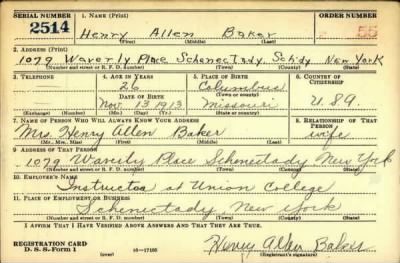 SERIAL NUMBER 1. NAME (Print) ORDER NUMBER
2514 Henry Allen Baker 55
(First) (Middle) (Last)
2. ADDRESS (Print)
1079 Waverly Place Schenectady, Sch'dy New York
(Number and street or R. F. D. number) (Town) (County) (State)
3. TELEPHONE 4. AGE IN YEARS 5. PLACE OF BIRTH 6. COUNTRY OF CITIZENSHIP
26 Columbus
DATE OF BIRTH (Town or county)
Nov. 13 1913 Missouri U.S.A.
(Exchange) (Number) (Mo.) (Day) (Yr.) (State or country)
7. NAME OF PERSON WHO WILL ALWAYS KNOW YOUR ADDRESS 8. RELATIONSHIP OF THAT PERSON
Mrs. Henry Allen Baker wife
(Mr., Mrs., Miss) (First) (Middle) (Last)
9. ADDRESS OF THAT PERSON
1079 Waverly Place Schenectady New York
(Number and street or R. F. D. number) (Town) (County) (State)
10. EMPLOYER'S NAME
Instructor at Union College
11. PLACE OF EMPLOYMENT OR BUSINESS
Schenectady, New York
(Number and street or R. F. D. number) (Town) (County) (State)
I AFFIRM THAT I HAVE VERIFIED ABOVE ANSWERS AND THAT THEY ARE TRUE.
REGISTRATION CARD
D. S. S. Form 1 (over) 16-17105 Henry Allen Baker
(Registrant's signature)